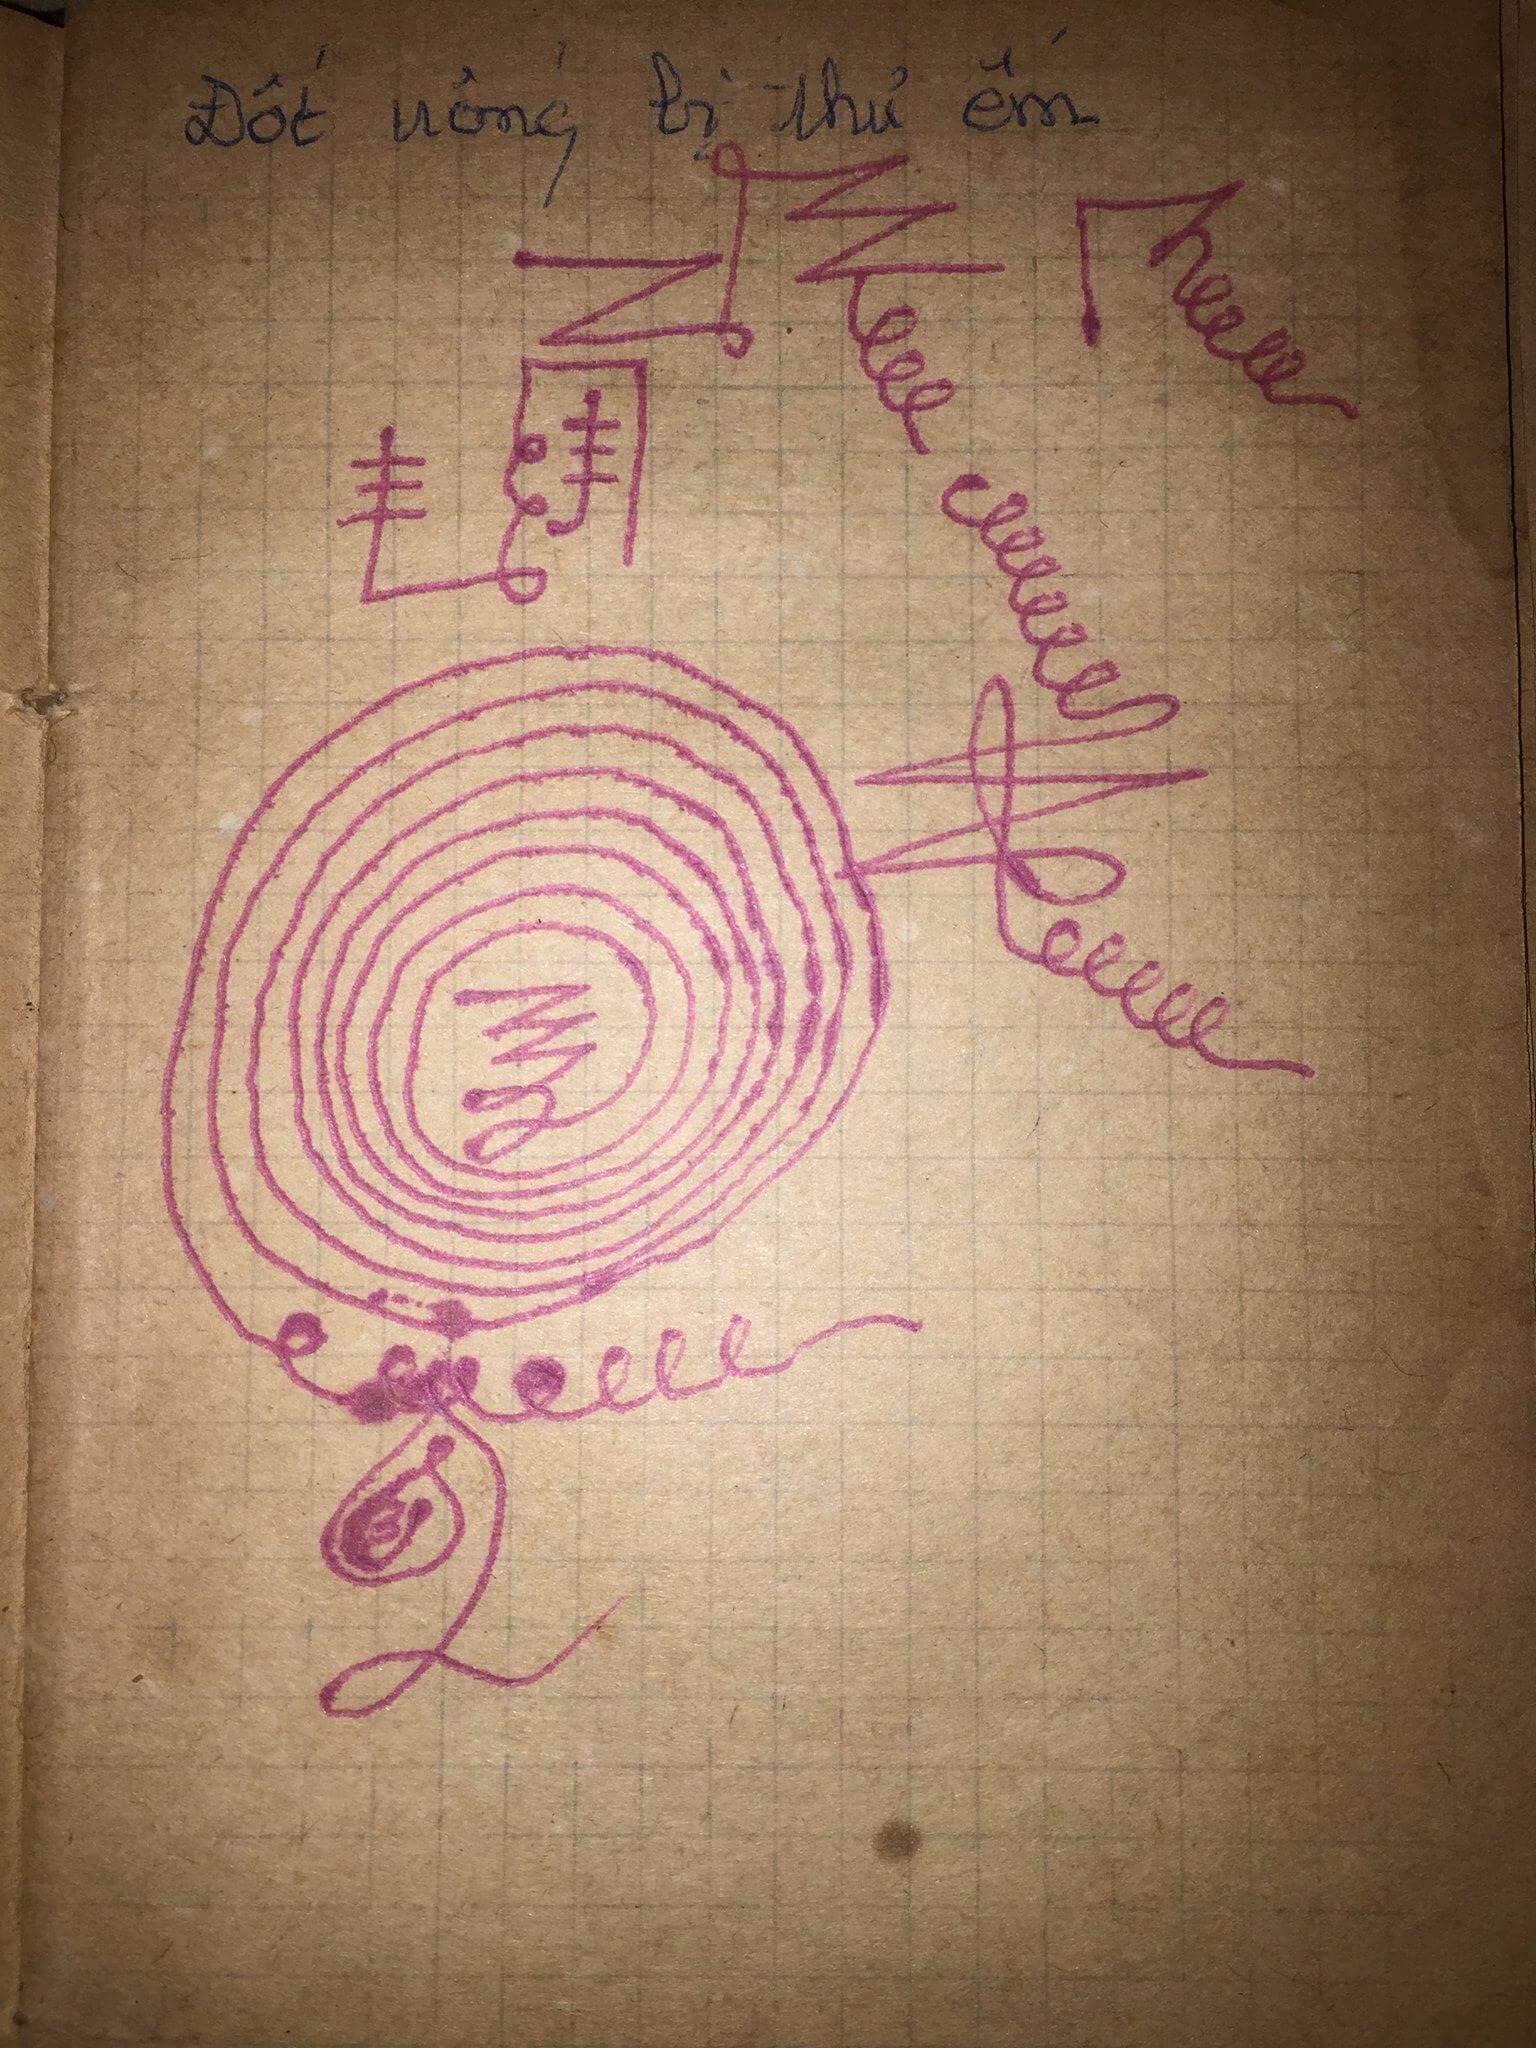 Đốt uống bị thư ếm